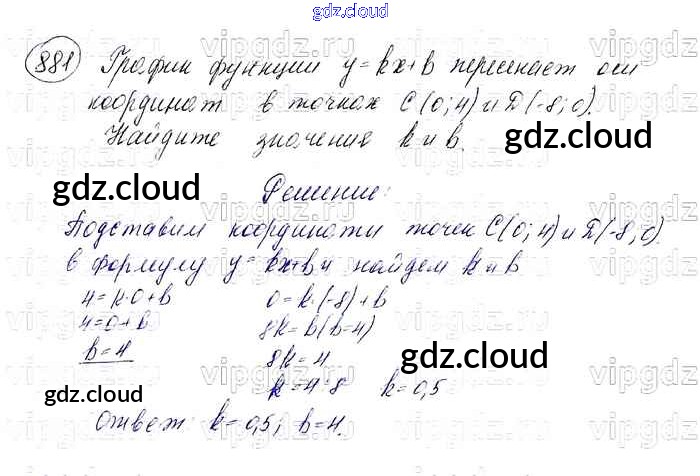 gdz.cloud
881 График функции y=kx+b пересекает оси
координат в точках C(0;4) и D(-8;0).
Найдите значения k и b.
gdz.cloud
gdz.cloud
Решение:
Подставим координаты точек C(0;4) и D(-8;0)
в формулу y=kx+b и найдем k и b
4=k·0+b 0=k·(-8)+b
4=0+b 8k=b(b=4)
b=4 8k=4
gdz.cloud
k=4:8 k=0,5
gdz.cloud
Ответ: k=0,5; b=4.